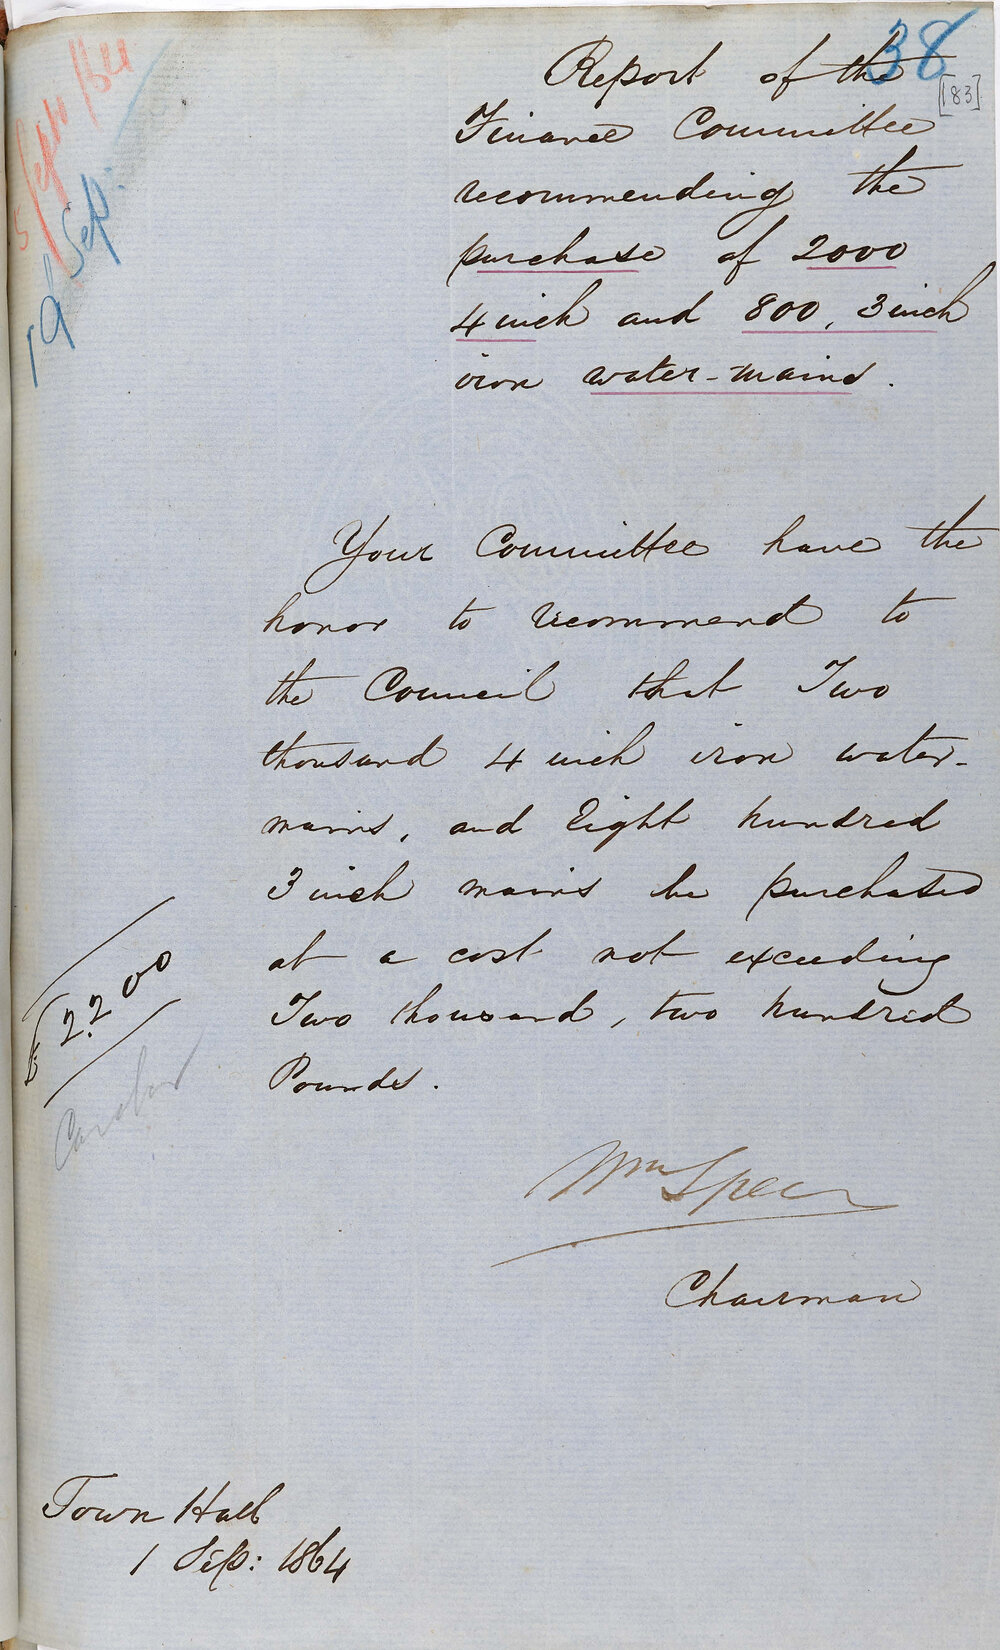 38
[183]
5 Sept /64
19 Sep:
Report of the
Finance Committee
recommending the
purchase of 2000
4 inch and 800, 3 inch
iron water-mains.
Your Committee have the
honor to recommend to
the Council that Two
thousand 4 inch iron water-
mains, and Eight hundred
3 inch mains be purchased
at a cost not exceeding
Two thousand, two hundred
Pounds.
£2.200
Carried
Wm Speer
Chairman
Town Hall
1 Sep: 1864